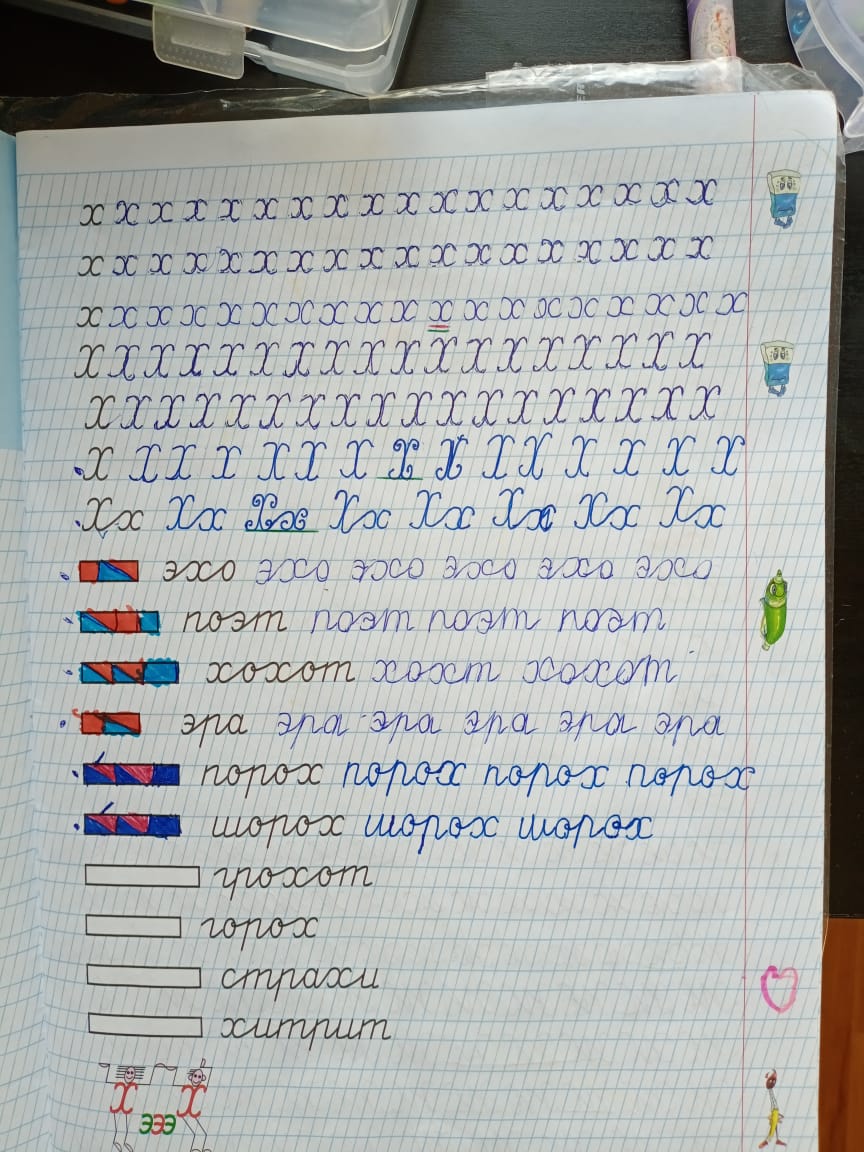 х х х х х х х х х х х х х х х х х х
х х х х х х х х х х х х х х х х х х
х х х х х х х х х х х х х х х х х х х
Х Х Х Х Х Х Х Х Х Х Х Х Х Х Х Х Х Х
Х Х Х Х Х Х Х Х Х Х Х Х Х Х Х Х Х Х
Х Х Х Х Х Х Х Х Х Х Х Х Х Х Х
Хх Хх Хх Хх Хх Хх Хх Хх
эхо эхо эхо эхо эхо эхо
поэт поэт поэт поэт
хохот хохт хохот
эра эра эра эра эра эра
порох порох порох порох
шорох шорох шорох
грохот
горох
страхи
хитрит
Х Х
эээ